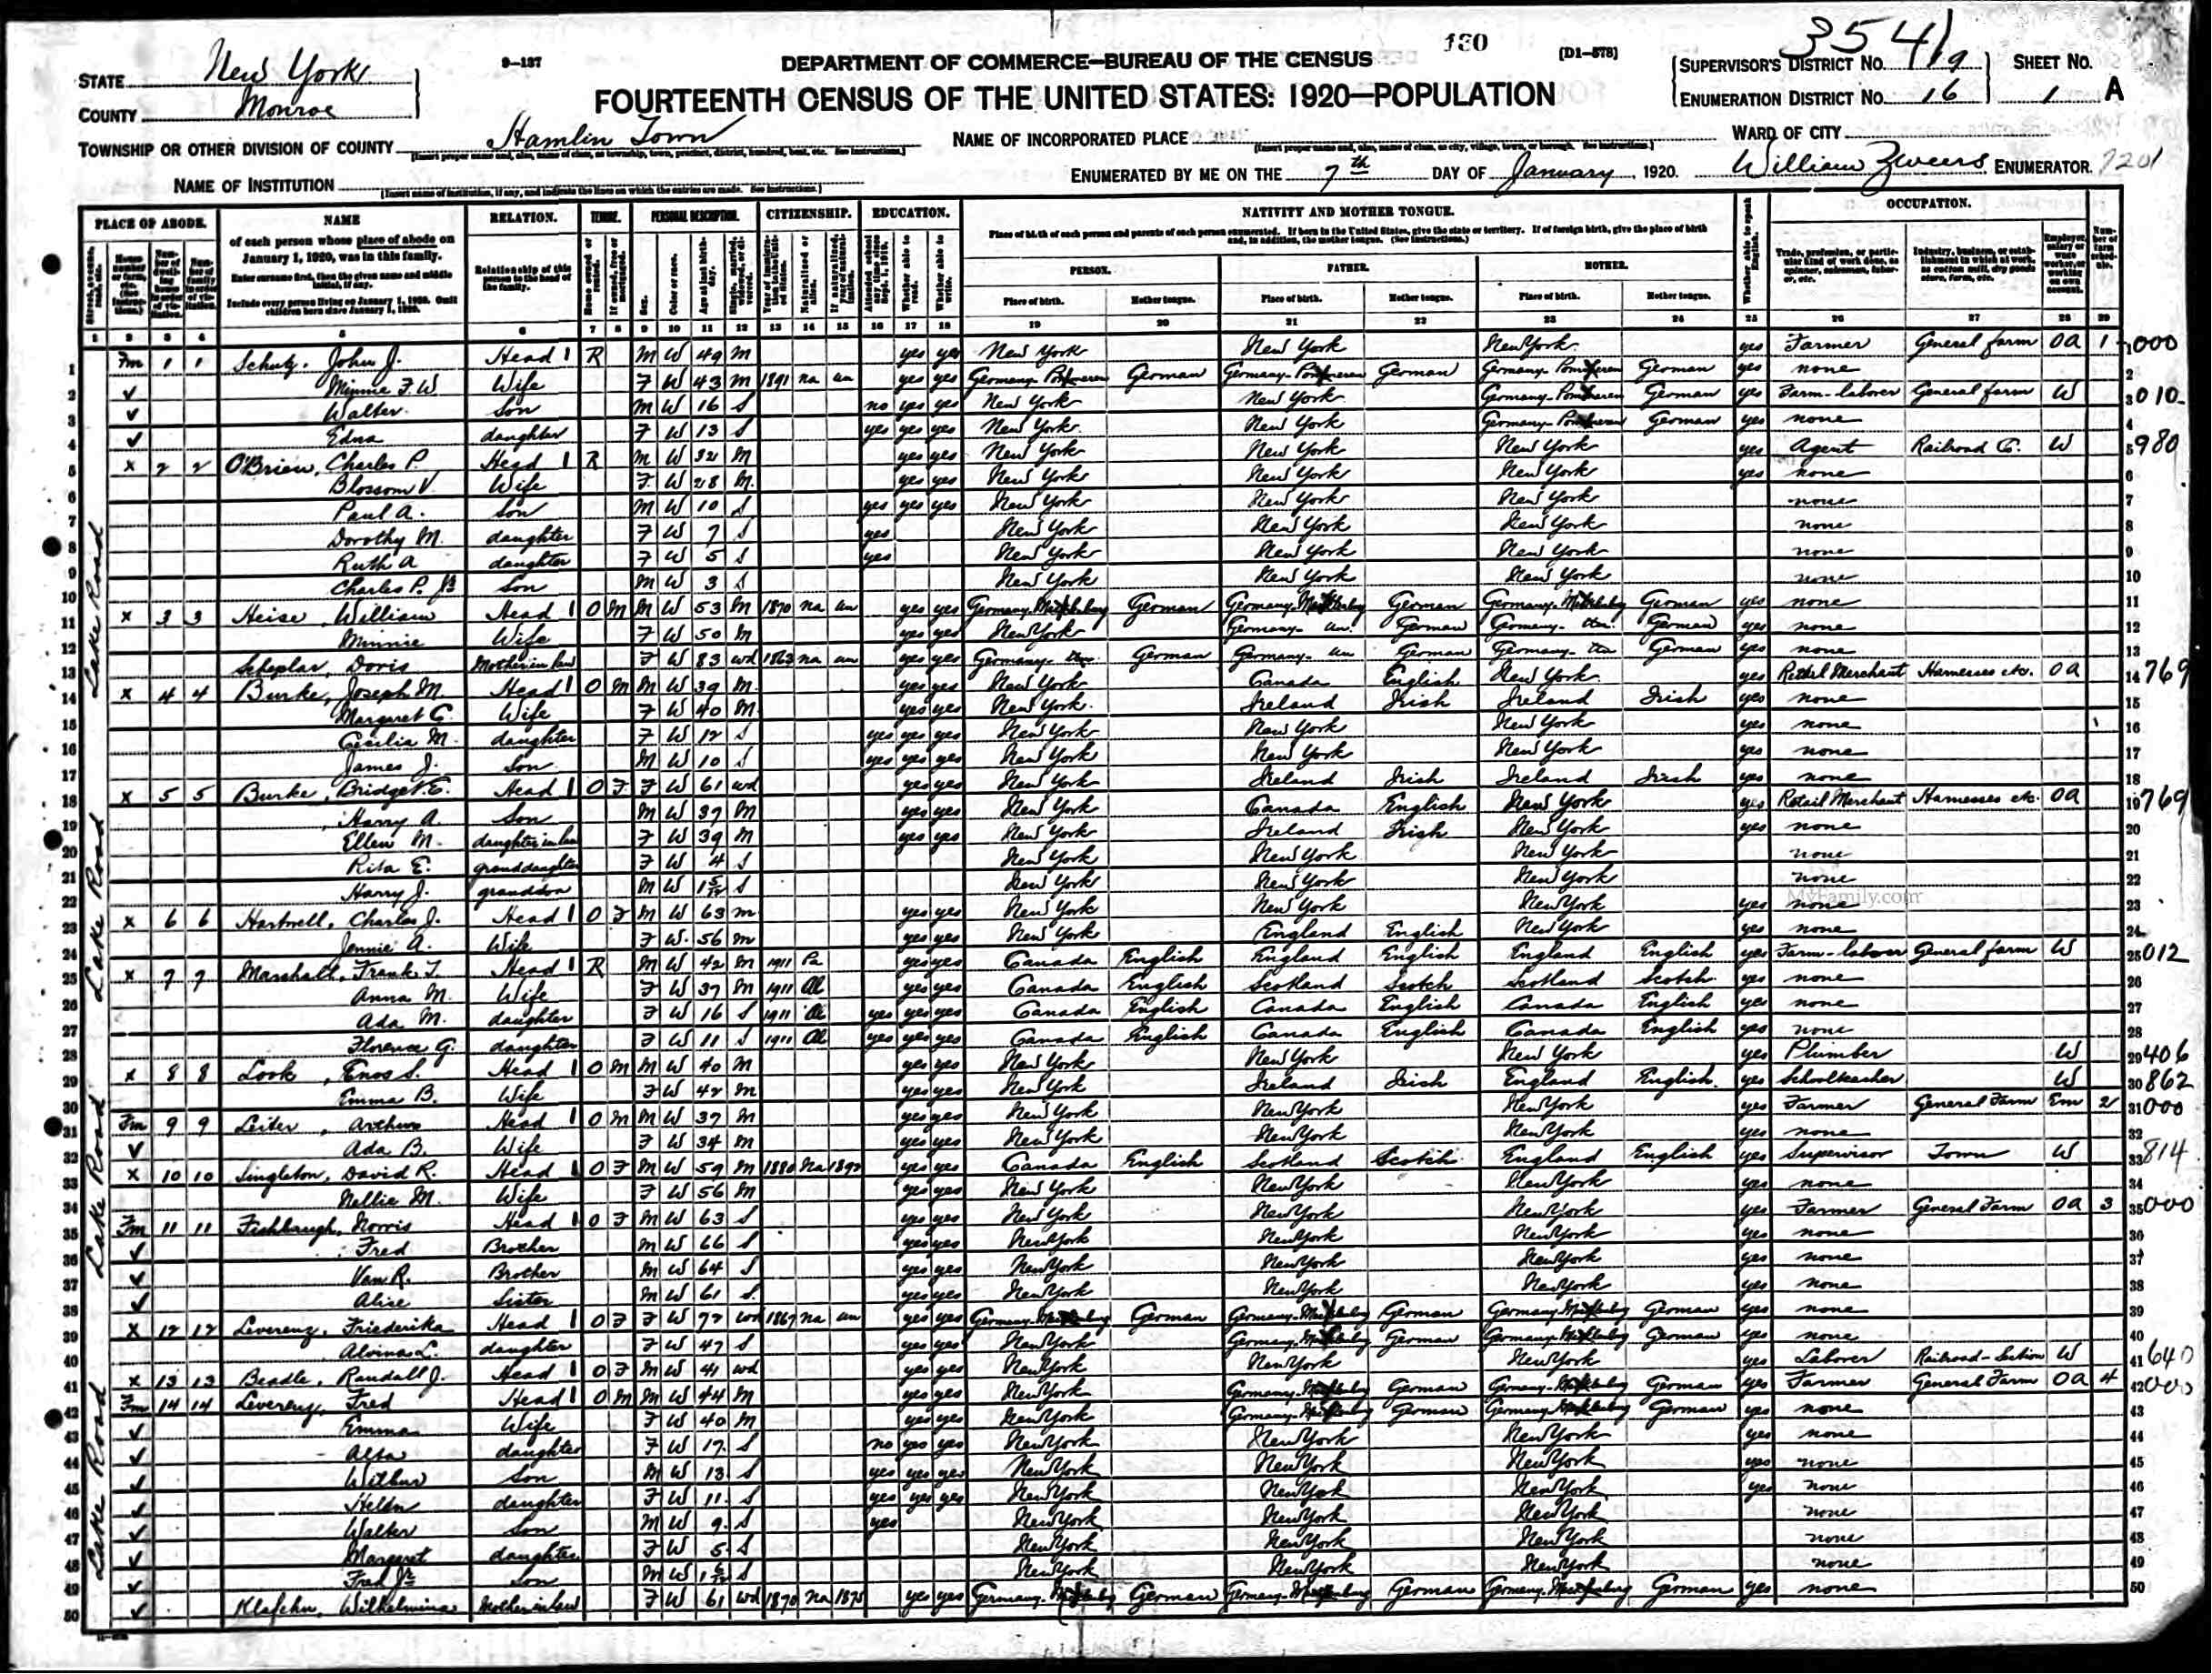 354 1
130
STATE New York
9-137
DEPARTMENT OF COMMERCE—BUREAU OF THE CENSUS
[D1-578]
SUPERVISOR'S DISTRICT No. 19
SHEET No.
COUNTY Monroe
FOURTEENTH CENSUS OF THE UNITED STATES: 1920—POPULATION
ENUMERATION DISTRICT No. 16
1 A
TOWNSHIP OR OTHER DIVISION OF COUNTY Hamlin Town
NAME OF INCORPORATED PLACE
WARD OF CITY
NAME OF INSTITUTION
ENUMERATED BY ME ON THE 7th DAY OF January, 1920. William Zweers ENUMERATOR. 7201
PLACE OF ABODE. NAME RELATION. TENURE. PERSONAL DESCRIPTION. CITIZENSHIP. EDUCATION. NATIVITY AND MOTHER TONGUE. OCCUPATION.
of each person whose place of abode on January 1, 1920, was in this family.
Enter surname first, then the given name and middle initial, if any.
Include every person living on January 1, 1920. Omit children born since January 1, 1920.
Relationship of this person to the head of the family.
Place of birth of each person and parents of each person enumerated. If born in the United States, give the state or territory. If of foreign birth, give the place of birth and, in addition, the mother tongue. (See instructions.)
PERSON. FATHER. MOTHER.
Place of birth. Mother tongue. Place of birth. Mother tongue. Place of birth. Mother tongue.
1 2 3 4 5 6 7 8 9 10 11 12 13 14 15 16 17 18 19 20 21 22 23 24 25 26 27 28 29
Lake Road
1 Fm 1 1 Schutz, John J. Head 1 R M W 49 M yes yes New York New York New York yes Farmer General farm OA 1 000
2 ✓ Minnie F.W. Wife F W 43 M 1891 na un yes yes Germany-Pommeren German Germany-Pommeren German Germany-Pommeren German yes none
3 ✓ Walter Son M W 16 S no yes yes New York New York Germany-Pommeren German yes Farm-laborer General farm W 010
4 ✓ Edna daughter F W 13 S yes yes yes New York New York Germany-Pommeren German yes none
5 x 2 2 O'Brien, Charles P. Head 1 R M W 32 M yes yes New York New York New York yes Agent Railroad Co. W 980
6 Blossom V. Wife F W 28 M yes yes New York New York New York yes none
7 Paul A. Son M W 10 S yes yes yes New York New York New York none
8 Dorothy M. daughter F W 7 S yes New York New York New York none
9 Ruth A daughter F W 5 S yes New York New York New York none
10 Charles P. Jr Son M W 3 S New York New York New York none
11 x 3 3 Heise, William Head 1 O M M W 53 M 1870 na un yes yes Germany-Mecklenburg German Germany-Mecklenburg German Germany-Mecklenburg German yes none
12 Minnie Wife F W 50 M yes yes New York Germany-un German Germany-un German yes none
13 Scheplar, Doris Mother in law F W 83 wd 1863 na un yes yes Germany-un German Germany-un German Germany-un German yes none
14 x 4 4 Burke, Joseph M Head 1 O M M W 39 M yes yes New York Canada English New York yes Retail Merchant Harnesses etc. OA 769
15 Margaret C. Wife F W 40 M yes yes New York Ireland Irish Ireland Irish yes none
16 Cecilia M. daughter F W 12 S yes yes yes New York New York New York yes none
17 James J. Son M W 10 S yes yes yes New York New York New York yes none
18 x 5 5 Burke, Bridget E. Head 1 O F F W 61 wd yes yes New York Ireland Irish Ireland Irish yes none
19 Harry A. Son M W 37 M yes yes New York Canada English New York yes Retail Merchant Harnesses etc. OA 769
20 Ellen M. daughter in law F W 39 M yes yes New York Ireland Irish New York yes none
21 Rita E. granddaughter F W 4 S New York New York New York none
22 Harry J. grandson M W 1 5/12 S New York New York New York none
MyFamily.com
23 x 6 6 Hartwell, Charles J. Head 1 O F M W 63 m yes yes New York New York New York yes none
24 Jennie A. Wife F W 56 m yes yes New York England English New York yes none
25 x 7 7 Marshall, Frank T. Head 1 R M W 42 M 1911 Pa yes yes Canada English England English England English yes Farm-laborer General farm W 012
26 Anna M. Wife F W 37 M 1911 Al yes yes Canada English Scotland Scotch Scotland Scotch yes none
27 Ada M. daughter F W 16 S 1911 Al yes yes yes Canada English Canada English Canada English yes none
28 Florence G. daughter F W 11 S 1911 Al yes yes yes Canada English Canada English Canada English yes none
29 x 8 8 Look, Enos S. Head 1 O M M W 40 M yes yes New York New York New York yes Plumber W 406
30 Emma B. Wife F W 42 M yes yes New York Ireland Irish England English yes Schoolteacher W 862
31 Fm 9 9 Leiter, Arthur Head 1 O M M W 37 M yes yes New York New York New York yes Farmer General Farm Em 2 000
32 ✓ Ada B. Wife F W 34 M yes yes New York New York New York yes none
33 x 10 10 Singleton, David R. Head 1 O F M W 59 M 1880 Na 1892 yes yes Canada English Scotland Scotch England English yes Supervisor Town W 814
34 Nellie M. Wife F W 56 M yes yes New York New York New York yes none
35 Fm 11 11 Fishbaugh, Norris Head 1 O F M W 63 S yes yes New York New York New York yes Farmer General Farm OA 3 000
36 ✓ Fred Brother M W 66 S yes yes New York New York New York yes none
37 ✓ Van R. Brother M W 64 S yes yes New York New York New York yes none
38 ✓ Alice Sister M W 61 S yes yes New York New York New York yes none
39 x 12 12 Leverenz, Friederika Head 1 O F F W 72 wd 1867 na un yes yes Germany-Mecklenburg German Germany-Mecklenburg German Germany-Mecklenburg German yes none
40 Alvina L. daughter F W 47 S yes yes New York Germany-Mecklenburg German Germany-Mecklenburg German yes none
41 x 13 13 Beadle, Randall J. Head 1 O F M W 41 wd yes yes New York New York New York yes Laborer Railroad-Section W 640
42 Fm 14 14 Leverenz, Fred Head 1 O M M W 44 M yes yes New York Germany-Mecklenburg German Germany-Mecklenburg German yes Farmer General Farm OA 4 000
43 ✓ Emma Wife F W 40 M yes yes New York Germany-Mecklenburg German Germany-Mecklenburg German yes none
44 ✓ Alta daughter F W 17 S no yes yes New York New York New York yes none
45 ✓ Wilbur Son M W 13 S yes yes yes New York New York New York yes none
46 ✓ Helen daughter F W 11 S yes yes yes New York New York New York yes none
47 ✓ Walter Son M W 9 S yes New York New York New York none
48 ✓ Margaret daughter F W 5 S New York New York New York none
49 ✓ Fred Jr Son M W S New York New York New York none
50 ✓ Klafehn, Wilhelmina Mother in law F W 61 wd 1870 Na 1875 yes yes Germany-Mecklenburg German Germany-Mecklenburg German Germany-Mecklenburg German yes none